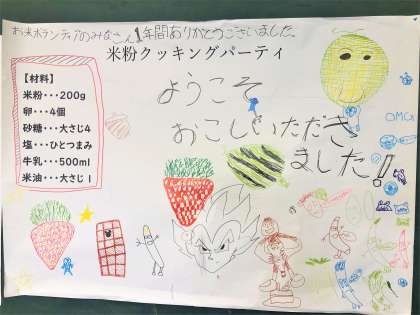 お米ボランティアのみなさん1年間ありがとうございました。
米粉クッキングパーティ
【材料】
米粉・・・200g
卵・・・4個
砂糖・・・大さじ4
塩・・・ひとつまみ
牛乳・・・500ml
米油・・・大さじ1
ようこそ
おこしいただき
ました!!
OMG!